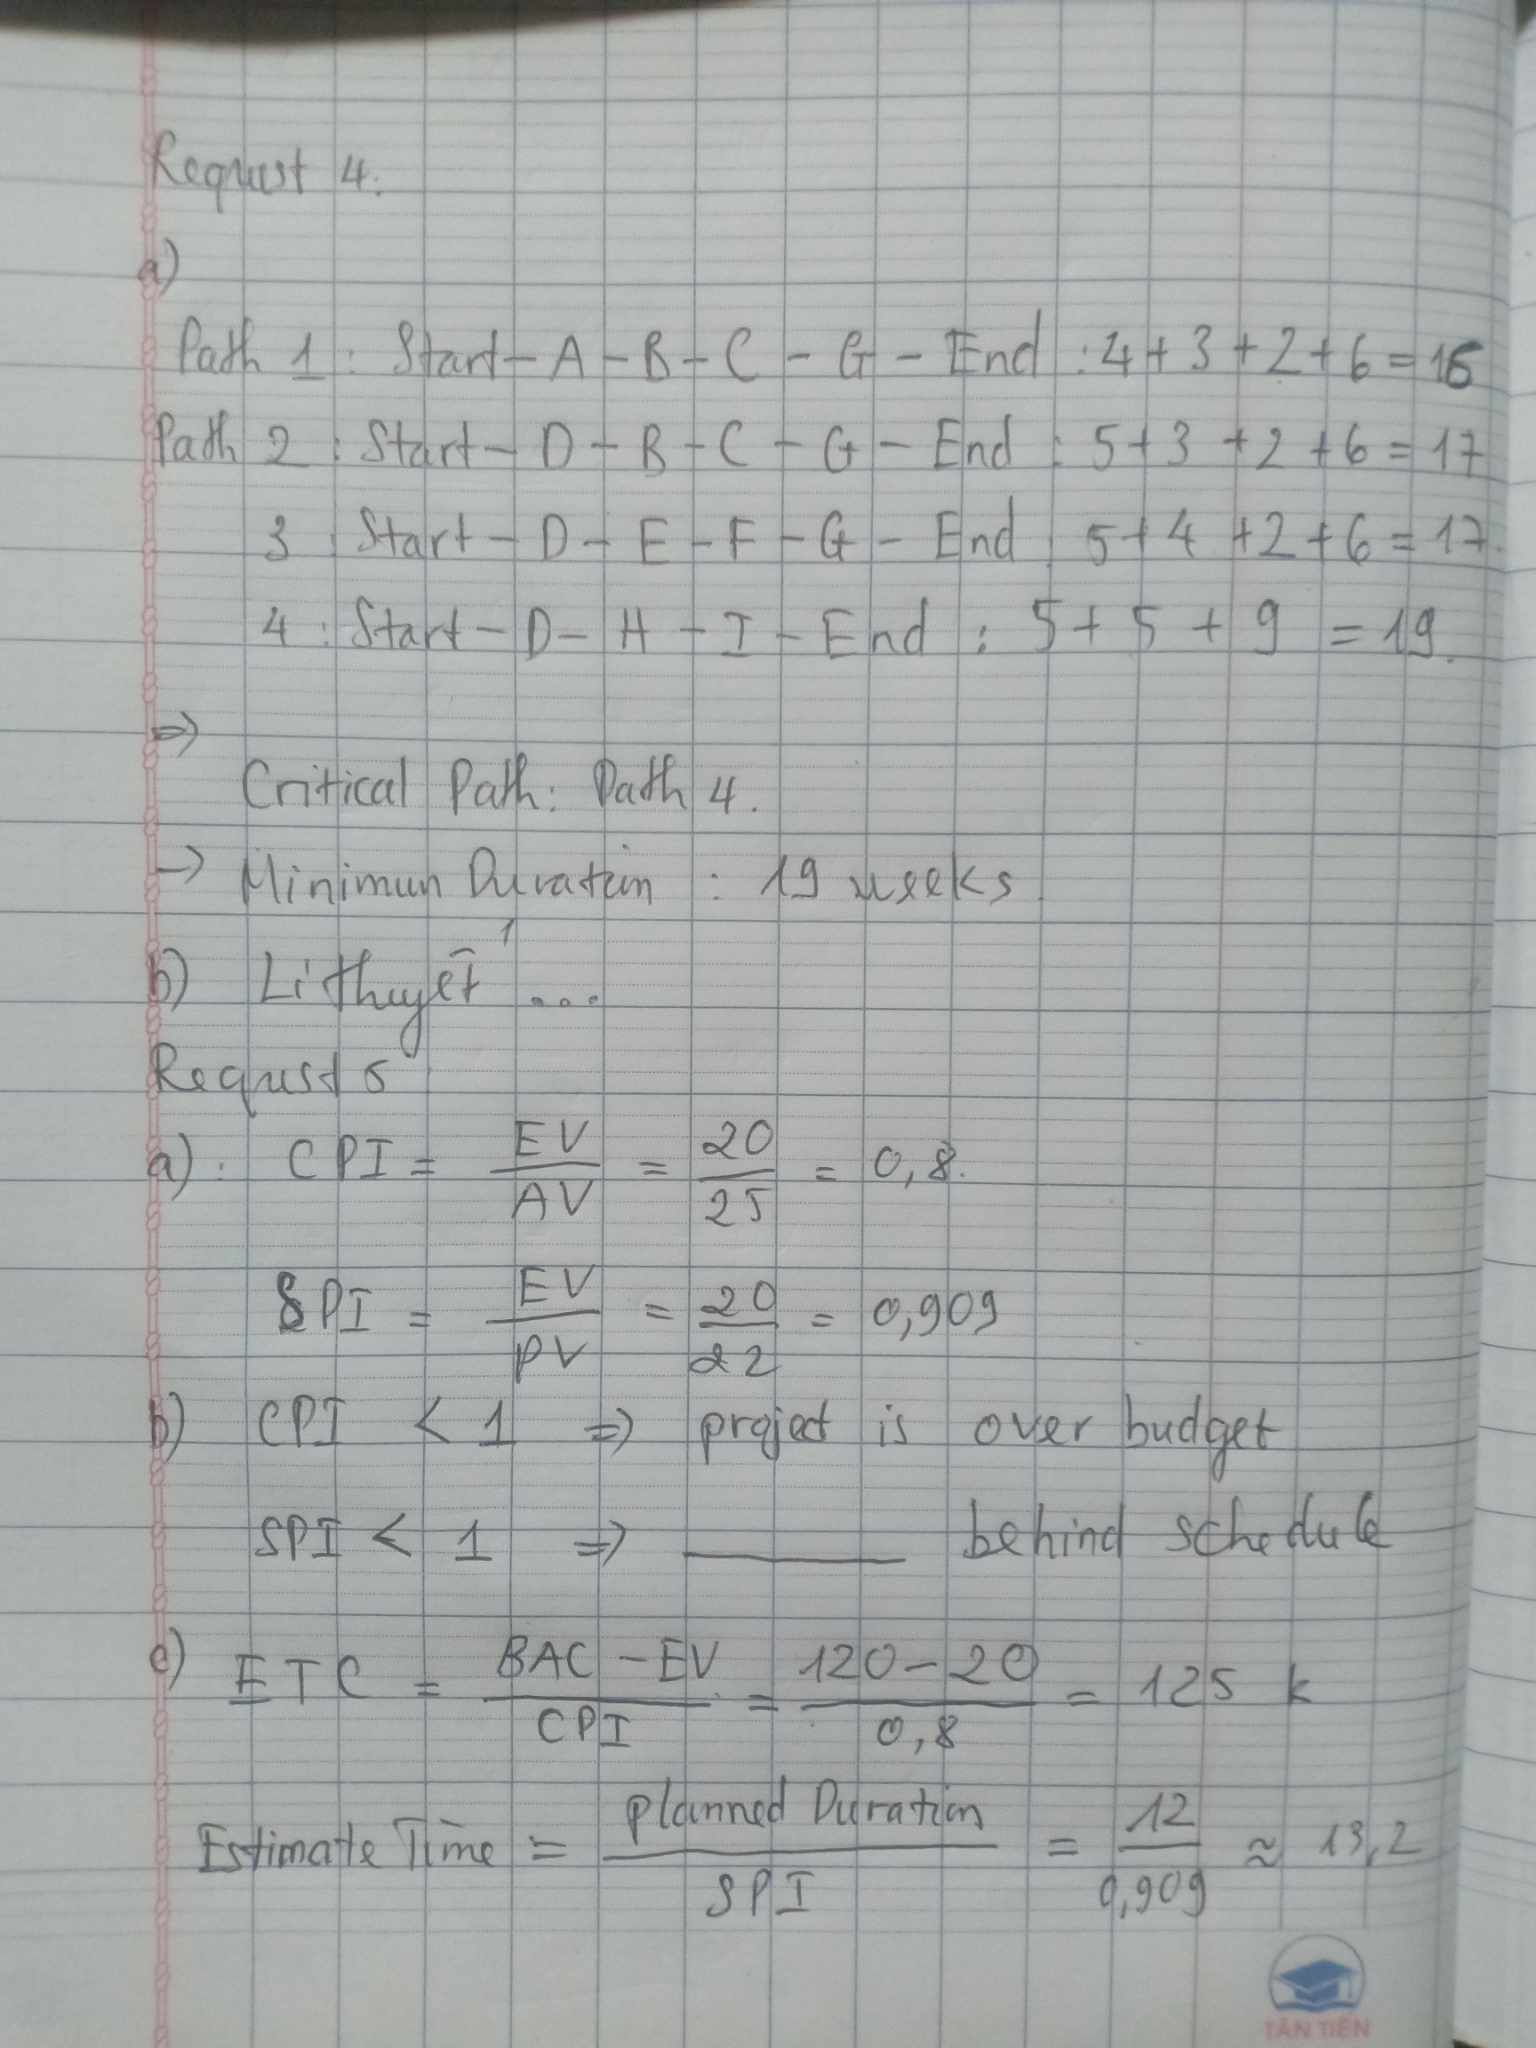 Request 4.
a)
Path 1 : Start - A - B - C - G - End : 4 + 3 + 2 + 6 = 15
Path 2 : Start - D - B - C - G - End : 5 + 3 + 2 + 6 = 17
3 : Start - D - E - F - G - End : 5 + 4 + 2 + 6 = 17.
4 : Start - D - H - I - End : 5 + 5 + 9 = 19.
=>
Critical Path: Path 4.
-> Minimun Duration : 19 weeks.
b) Lí thuyết ...
Request 5
a) : CPI = EV / AV = 20 / 25 = 0,8.
SPI = EV / PV = 20 / 22 = 0,909
b) CPI < 1 => project is over budget
SPI < 1 => ______ behind schedule
c) ETC = BAC - EV / CPI = 120 - 20 / 0,8 = 125 k
Estimate Time = Planned Duration / SPI = 12 / 0,909 ≈ 13,2
TÂN TIẾN